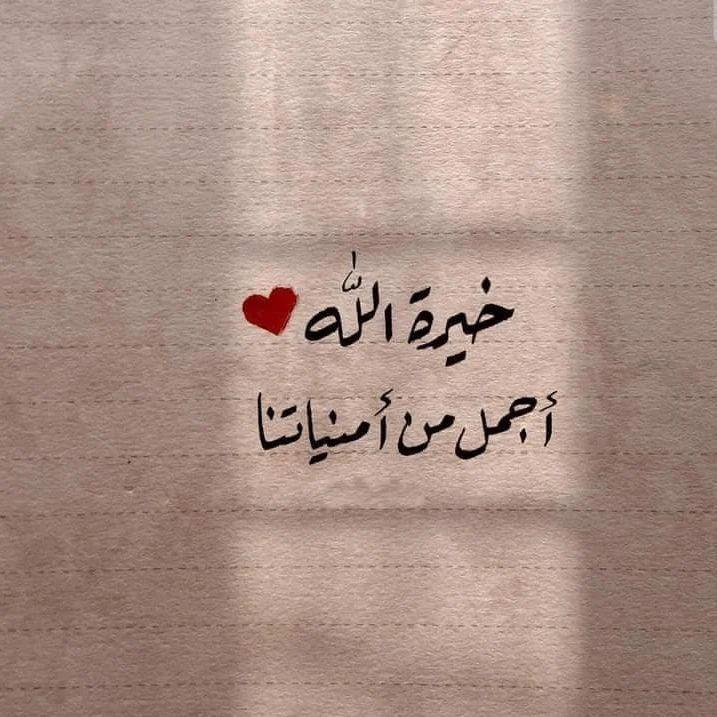 خيرة الله ❤
أجمل من أمنياتنا